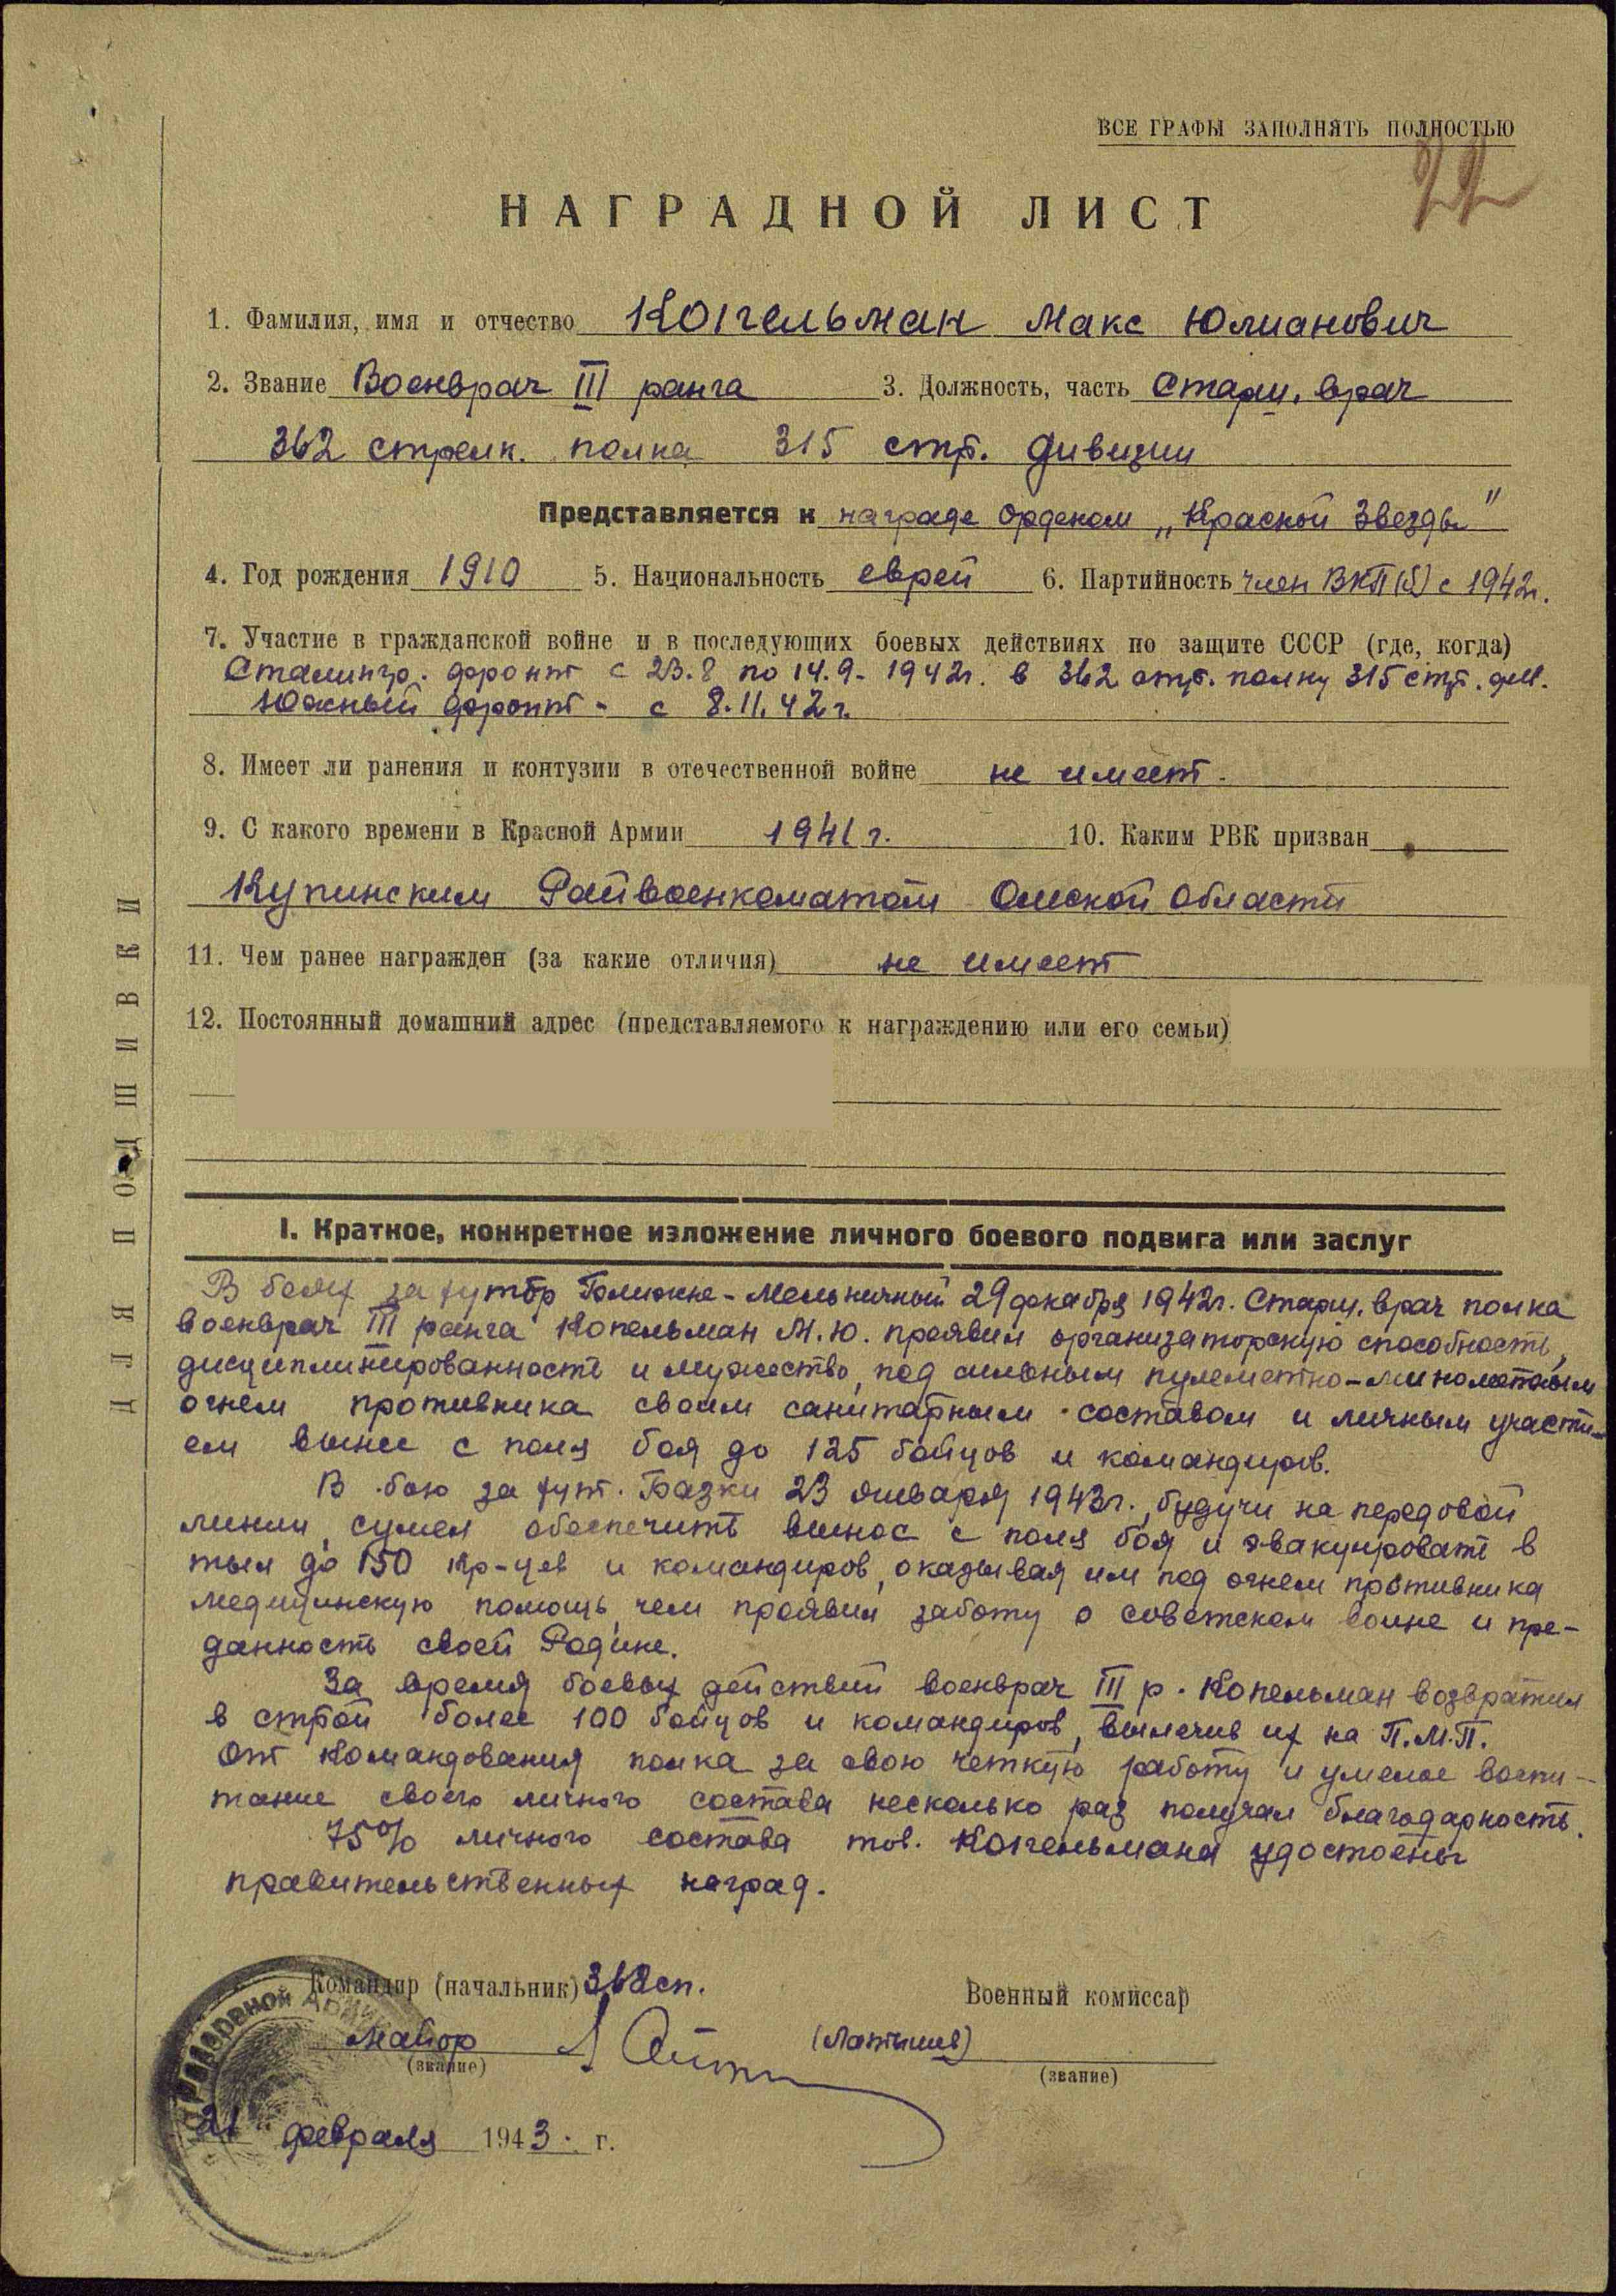 ВСЕ ГРАФЫ ЗАПОЛНЯТЬ ПОЛНОСТЬЮ
22
НАГРАДНОЙ ЛИСТ
1. Фамилия, имя и отчество Копельман Макс Юлианович
2. Звание Военврач III ранга 3. Должность, часть Старш. врач
362 стрелк. полка 315 стр. дивизии
Представляется к награде орденом „Красной Звезды"
4. Год рождения 1910 5. Национальность еврей 6. Партийность член ВКП(б) с 1942г.
7. Участие в гражданской войне и в последующих боевых действиях по защите СССР (где, когда)
Сталингр. фронт с 23.8 по 14.9. 1942г. в 362 стр. полку 315 стр. див.
Южный фронт - с 8.11.42г.
8. Имеет ли ранения и контузии в отечественной войне не имеет.
9. С какого времени в Красной Армии 1941г. 10. Каким РВК призван
Купинским Райвоенкоматом Омской области
11. Чем ранее награжден (за какие отличия) не имеет
12. Постоянный домашний адрес (представляемого к награждению или его семьи)
ДЛЯ ПОДШИВКИ
I. Краткое, конкретное изложение личного боевого подвига или заслуг
В боях за хутор Ближне-Мельничный 29 декабря 1942г. Старш. врач полка
военврач III ранга Копельман М.Ю. проявил организаторскую способность,
дисциплинированность и мужество, под сильным пулеметно-минометным
огнем противника своим санитарным составом и личным участи-
ем вынес с поля боя до 125 бойцов и командиров.
В бою за хут. Базки 23 января 1943г., будучи на передовой
линии, сумел обеспечить вынос с поля боя и эвакуировать в
тыл до 150 кр-цев и командиров, оказывая им под огнем противника
медицинскую помощь, чем проявил заботу о советском воине и пре-
данность своей Родине.
За время боевых действий военврач III р. Копельман возвратил
в строй более 100 бойцов и командиров, вылечив их на П.М.П.
От командования полка за свою четкую работу и умелое воспи-
тание своего личного состава несколько раз получал благодарность.
75% личного состава тов. Копельмана удостоены
правительственных наград.
Командир (начальник) 362сп. Военный комиссар
майор (Латышев)
(звание) (звание)
21 февраля 1943. г.